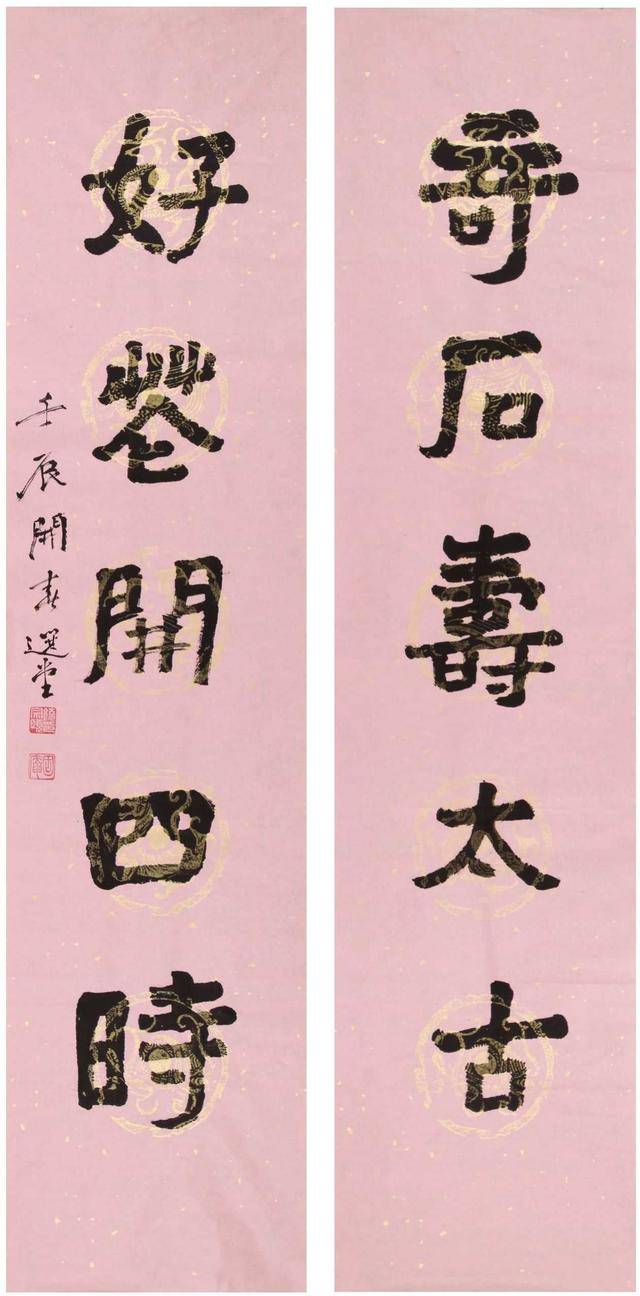 竒石壽太古
好花開四時
壬辰開春選堂